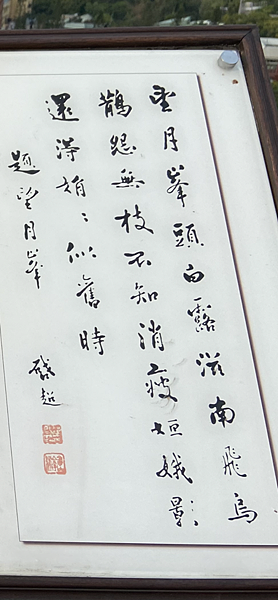 望月峯頭白露滋南飛烏
鵲怨無枝不知消瘦姮娥影
還得娟〻似舊時
題望月峯
啓超